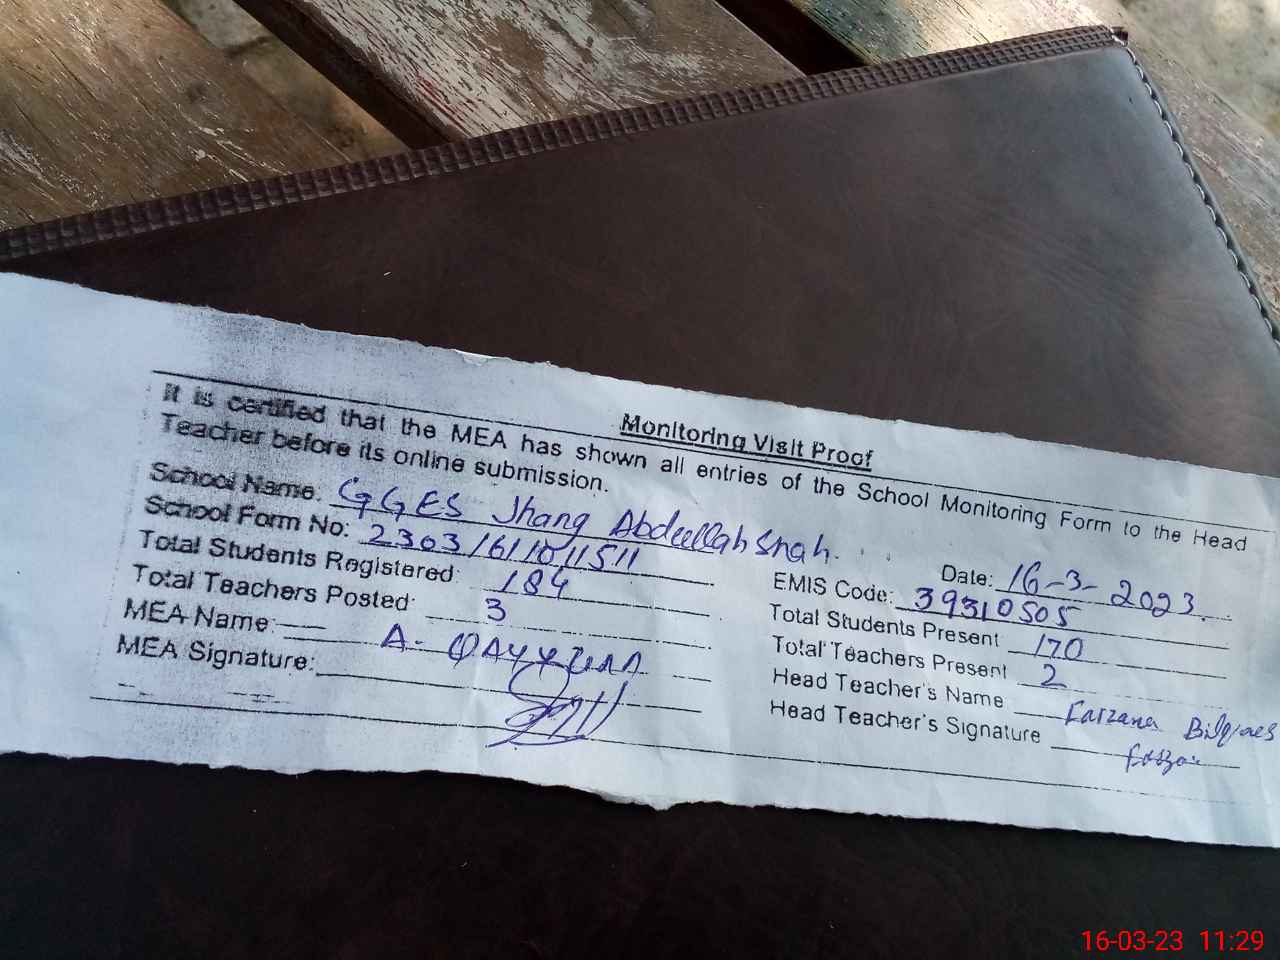 Monitoring Visit Proof
It is certified that the MEA has shown all entries of the School Monitoring Form to the Head
Teacher before its online submission.
School Name: GGES Jhang Abdullah Shah. Date: 16-3-2023
School Form No: EMIS Code: 39310505
Total Students Registered: 184 Total Students Present 170
Total Teachers Posted: 3 Total Teachers Present 2
MEA Name: A. QAYYUM Head Teacher's Name Farzana
MEA Signature: Head Teacher's Signature
16-03-23 11:29